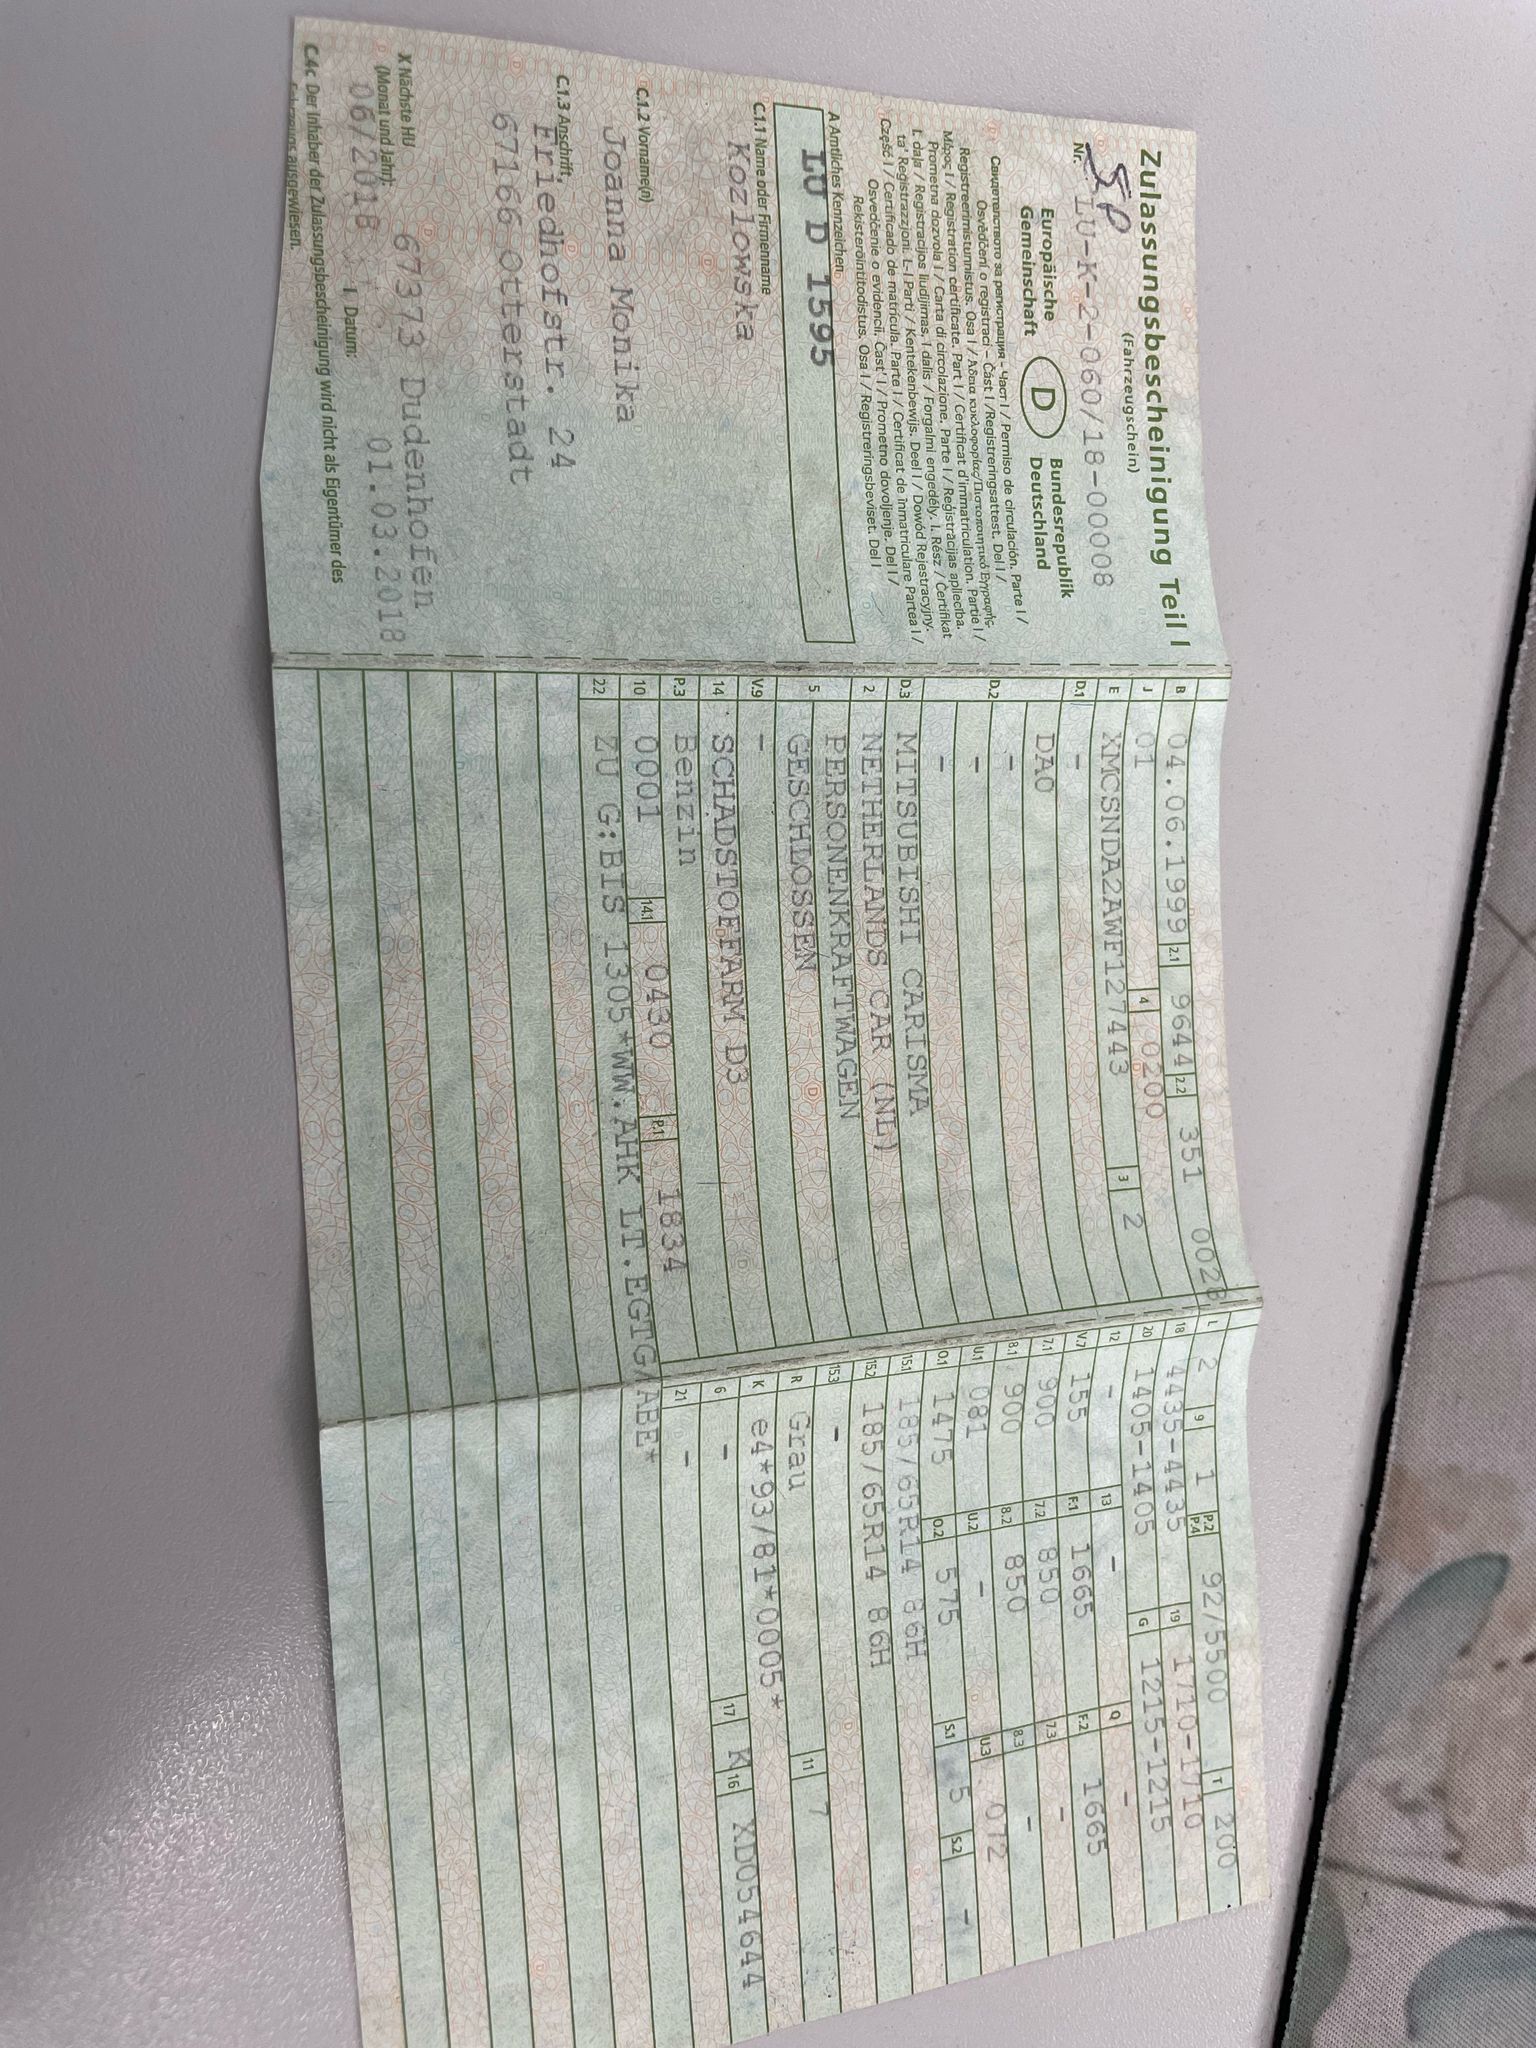 Zulassungsbescheinigung Teil I
(Fahrzeugschein)
Nr. LU-K-2-060/18-00008
SP
Europäische Gemeinschaft
D
Bundesrepublik Deutschland
Свидетелство за регистрация - Част I / Permiso de circulación. Parte I /
Osvědčení o registraci – Část I / Registreringsattest. Del I /
Registreerimistunnistus. Osa I / Άδεια κυκλοφορίας/Πιστοποιητικό Εγγραφής.
Μέρος I / Registration certificate. Part I / Certificat d'immatriculation. Partie I /
Prometna dozvola I / Carta di circolazione. Parte I / Reģistrācijas apliecība.
I. daļa / Registracijos liudijimas. I dalis / Forgalmi engedély. I. Rész / Ċertifikat
ta' Reġistrazzjoni. L-I Parti / Kentekenbewijs. Deel I / Dowód Rejestracyjny.
Część I / Certificado de matrícula. Parte I / Certificat de înmatriculare Partea I /
Osvedčenie o evidencii. Časť I / Prometno dovoljenje. Del I /
Rekisteröintitodistus. Osa I / Registreringsbeviset. Del I
A Amtliches Kennzeichen
LU D 1595
C.1.1 Name oder Firmenname
Kozlowska
C.1.2 Vorname(n)
Joanna Monika
C.1.3 Anschrift
Friedhofstr. 24
67166 Otterstadt
67373 Dudenhofen
X Nächste HU
(Monat und Jahr):
06/2018
I Datum:
01.03.2018
C.4c Der Inhaber der Zulassungsbescheinigung wird nicht als Eigentümer des
Fahrzeugs ausgewiesen.
B 04.06.1999 2.1 9644 2.2 351 0028
J 01 4 0200
E XMCSNDA2AWF127443 3 2
D.1 -
DA0
D.2 -
-
-
D.3 MITSUBISHI CARISMA
2 NETHERLANDS CAR (NL)
5 PERSONENKRAFTWAGEN
GESCHLOSSEN
V.9 -
14 SCHADSTOFFARM D3
P.3 Benzin
10 0001 14.1 0430 P.1 1834
22 ZU G:BIS 1305*WW.AHK LT.EGTG/ABE*
L 2 9 1 P.2 P.4 92/5500 T 200
18 4435-4435 19 1710-1710
20 1405-1405 G 1215-1215
12 - 13 - Q -
V.7 155 F.1 1665 F.2 1665
7.1 900 7.2 850 7.3 -
8.1 900 8.2 850 8.3 -
U.1 081 U.2 - U.3 072
O.1 1475 O.2 575 S.1 5 S.2 -
15.1 185/65R14 86H
15.2 185/65R14 86H
15.3 -
R Grau 11 7
K e4*93/81*0005*
6 - 17 K 16 XD054644
21 -